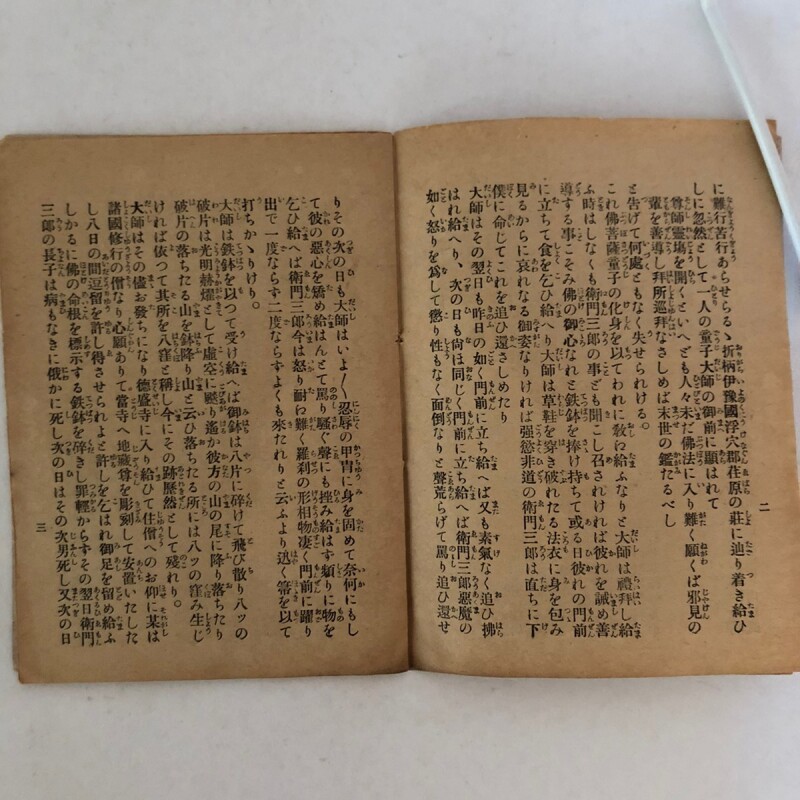 二
に難行苦行あらせらるゝ折柄伊豫國浮穴郡荏原の莊に辿り着き給ひ
しに忽然として一人の童子大師の御前に顯はれて
尊師靈塲を開くといへども人々未だ佛法に入り難く願くば邪見の
輩を善導し拜所巡拜なさしめば末世の鑑たるべし
と告げて何處ともなく失せられける。
これ佛菩薩童子の化身を以てわれに敎わ給ふなりと大師は禮拜し給
ふ時はしなくも衛門三郎の事ども聞こし召されければ彼れを誡め善
導する事こそみ佛の御心なれと鉄鉢を捧け持ちて或る日彼れの門前
に立ちて食を乞ひ給へり大師は草鞋を穿き破れたる法衣に身を包み
見るからに哀れなる御姿なりければ強慾非道の衛門三郎は直ちに下
僕に命じてこれを追ひ還さしめたり
大師はその翌日も昨日の如く門前に立ち給へば又も素氣なく追ひ拂
はれ給へり、次の日も尙ほ同じく門前に立ち給へば衛門三郎惡魔の
如く怒りを爲して懲り性もなく面倒なりと聲荒らげて罵り追ひ還せ
りその次の日も大師はいよ〱忍辱の甲冑に身を固めて奈何にもし
て彼の惡心を矯め給はんとて罵り騒ぐ聲にも挫み給はす頻りに物を
乞ひ給へば衛門三郎今は怒り耐わ難く羅刹の形相物凄く門前に躍り
出で一度ならず二度ならすよくも來たれりと云ふより迅く箒を以て
打ちかゝりけり。
大師は鉄鉢を以つて受け給へば御鉢は八片に碎けて飛び散り八ッの
破片は光明赫燿として虛空に颺り遙か彼方の山の尾に降り落ちたり
破片の落ちたる山を鉢降り山と云ひ落ちたる所には八ッの窪み生じ
ければ依つて其所を八窪と稱し今にその跡歷然として殘れり。
大師はその儘お發ちになり德盛寺に入り給ひて住僧へのお仰に某は
諸國修行の僧なり心願ありて當寺へ地藏尊を彫刻して安置いたした
し八日の間逗留を許し得させられよと許しを乞はれ御足を留め給ふ
しかるに佛の命根を標示する鉄鉢を碎きし罪輕からすその翌日衛門
三郎の長子は病もなきに俄かに死し次の日はその次男死し又次の日
三